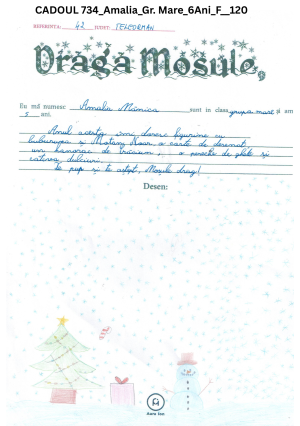 CADOUL 734_Amalia_Gr. Mare_6Ani_F__120
REFERINTA: 42 JUDET: TELEORMAN
Dragă Moșule,
Eu mă numesc Amalia sunt în clasa grupa mare și am
5 ani.
Anul acesta îmi doresc figurine cu
buburuza și Motanul Noir, o carte de desenat,
un hanorac de trăsium, o pereche de ghete și
câteva dulciuri.
Te pup și te aștept, Moșule drag!
Desen: